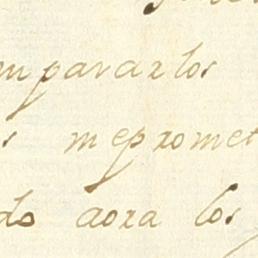 mpararlos
s mepromet
do aora los